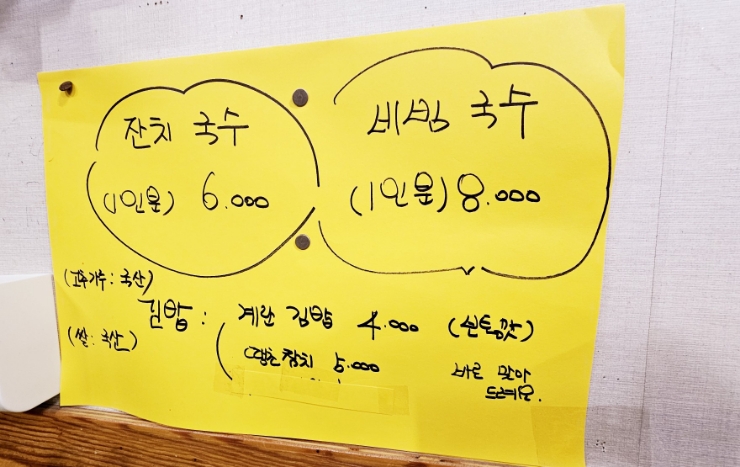 잔치 국수
(1인분) 6.000
비빔 국수
(1인분) 8.000
(고추가루 : 국산)
(쌀 : 국산)
김밥 :
계란 김밥 4.000
땡초참치 5.000
바로 말아
드려요.